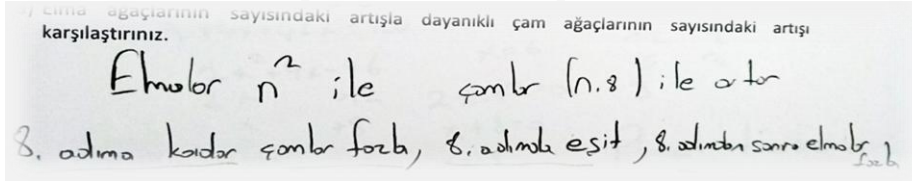 elma ağaçlarının sayısındaki artışla dayanıklı çam ağaçlarının sayısındaki artışı
karşılaştırınız.
Elmalar n² ile çamlar (n.8) ile artar
8. adıma kadar çamlar fazla, 8. adımda eşit, 8. adımdan sonra elmalar fazla